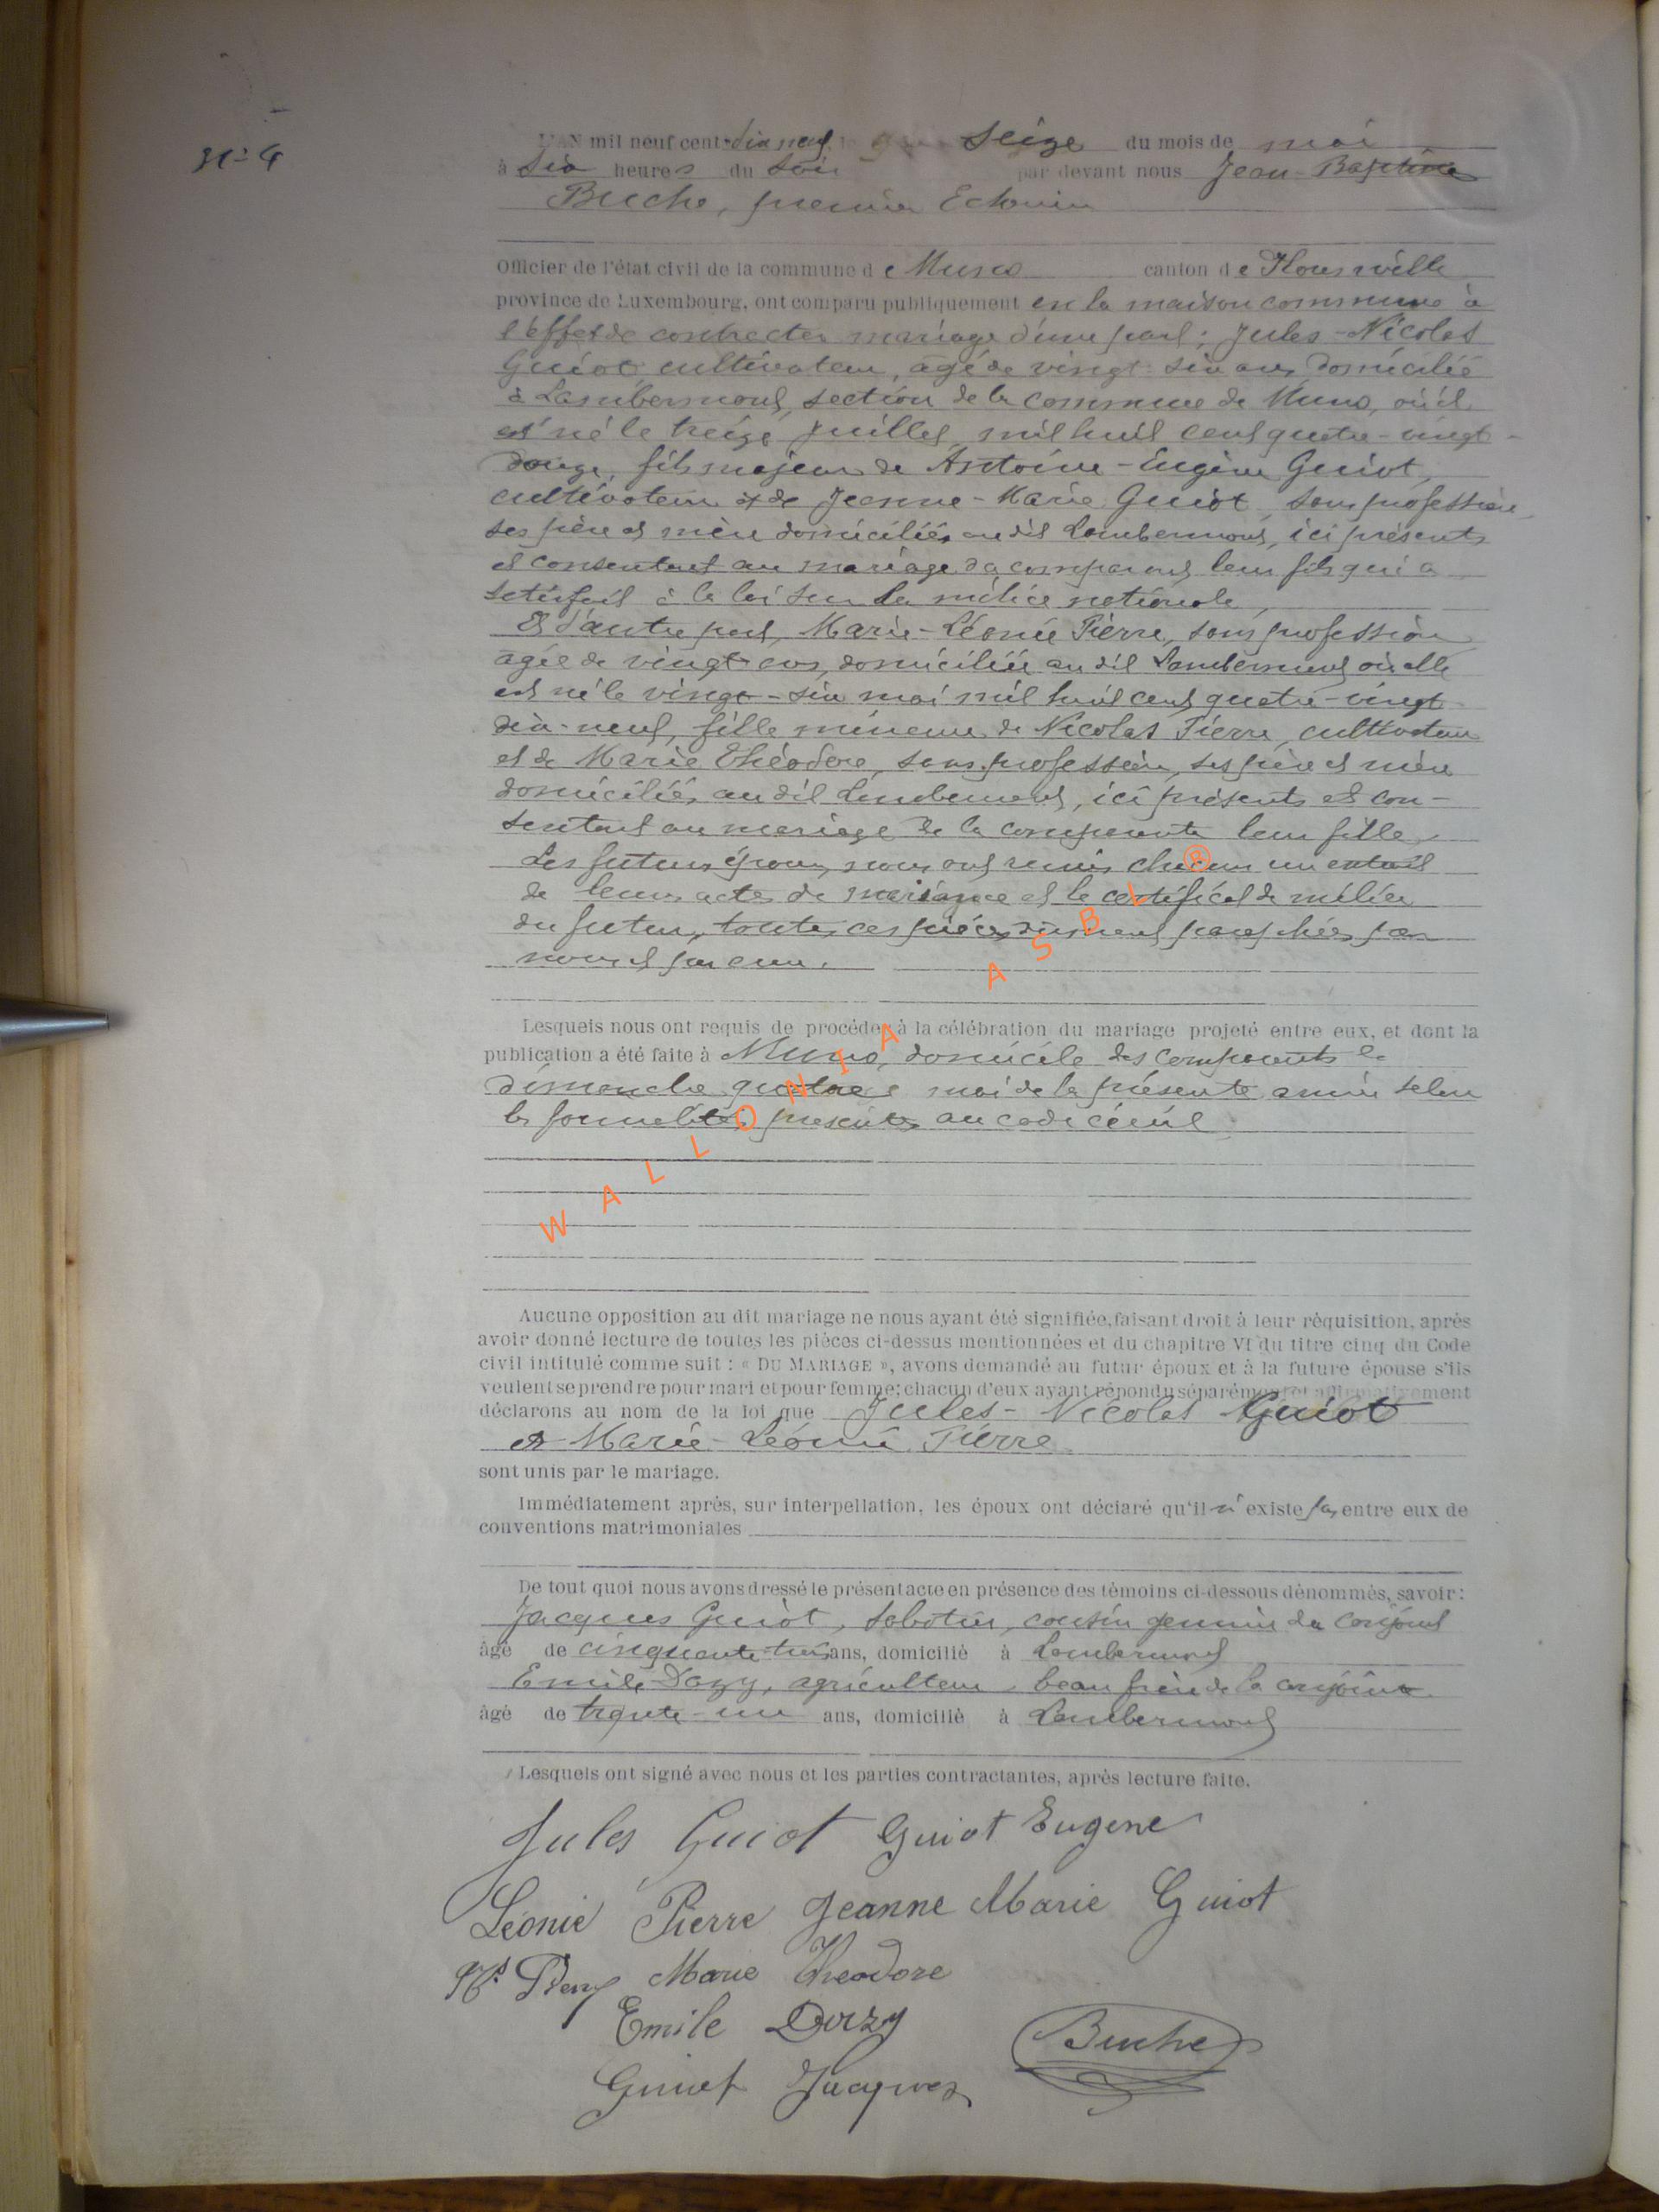 N° 4
L'AN mil neuf cent dix neuf, le seize du mois de mai
à six heures du soir par devant nous Jean-Baptiste
Buche, premier Echevin
Officier de l'état civil de la commune de Muno canton de Florenville
province de Luxembourg, ont comparu publiquement en la maison commune à
l'effet de contracter mariage d'une part; Jules-Nicolas
Guiot cultivateur, âgé de vingt-six ans, domicilié
à Lambermont, section de la commune de Muno, où il
est né le treize juillet mil huit cent quatre-vingt-
douze, fils majeur de Antoine-Eugène Guiot,
cultivateur et de Jeanne-Marie Guiot, sans profession,
ses père et mère domiciliés au dit Lambermont, ici présents
et consentant au mariage du comparant leur fils qui a
satisfait à la loi sur la milice nationale,
Et d'autre part, Marie-Léonie Pierre, sans profession
âgée de vingt ans, domiciliée au dit Lambermont où elle
est né le vingt-six mai mil huit cent quatre-vingt
dix-neuf, fille mineure de Nicolas Pierre, cultivateur
et de Marie Théodore, sans profession, ses père et mère
domiciliés au dit Lambermont, ici présents et con-
sentant au mariage de la comparante leur fille.
Les futurs époux, nous ont remis chacun un extrait
de leurs actes de et le certificat de milice
du futur, toutes ces pièces dûment paraphées par
nous et par eux.
Lesquels nous ont requis de procéder à la célébration du mariage projeté entre eux, et dont la
publication a été faite à Muno, domicile des comparants le
dimanche quatre mai de la présente année selon
les formalités prescrites au code civil.
WALLONIA ASBL ®
Aucune opposition au dit mariage ne nous ayant été signifiée, faisant droit à leur réquisition, après
avoir donné lecture de toutes les pièces ci-dessus mentionnées et du chapitre VI du titre cinq du Code
civil intitulé comme suit : « DU MARIAGE », avons demandé au futur époux et à la future épouse s'ils
veulent se prendre pour mari et pour femme; chacun d'eux ayant répondu séparément et affirmativement
déclarons au nom de la loi que Jules-Nicolas Guiot
et Marie-Léonie Pierre
sont unis par le mariage.
Immédiatement après, sur interpellation, les époux ont déclaré qu'il n'existe pas entre eux de
conventions matrimoniales
De tout quoi nous avons dressé le présent acte en présence des témoins ci-dessous dénommés, savoir:
Jacques Guiot, sabotier, cousin germain du conjoint
âgé de cinquante-trois ans, domicilié à Lambermont
Emile Dozy, agriculteur, beau frère de la conjointe
âgé de trente-un ans, domicilié à Lambermont
Lesquels ont signé avec nous et les parties contractantes, après lecture faite.
Jules Guiot Guiot Eugene
Léonie Pierre Jeanne Marie Guiot
Marie Theodore
Emile Dozy
Buche
Guiot Jacques